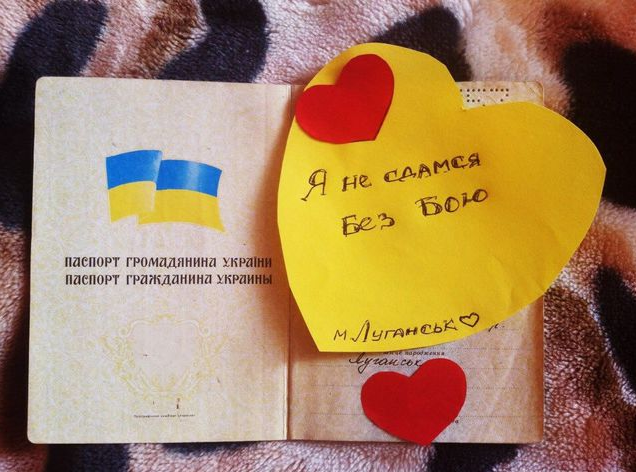 ПАСПОРТ ГРОМАДЯНИНА УКРАЇНИ
ПАСПОРТ ГРАЖДАНИНА УКРАИНЫ
Я не сдамся
Без Бою
м. Луганськ♡
народження
Луганськ